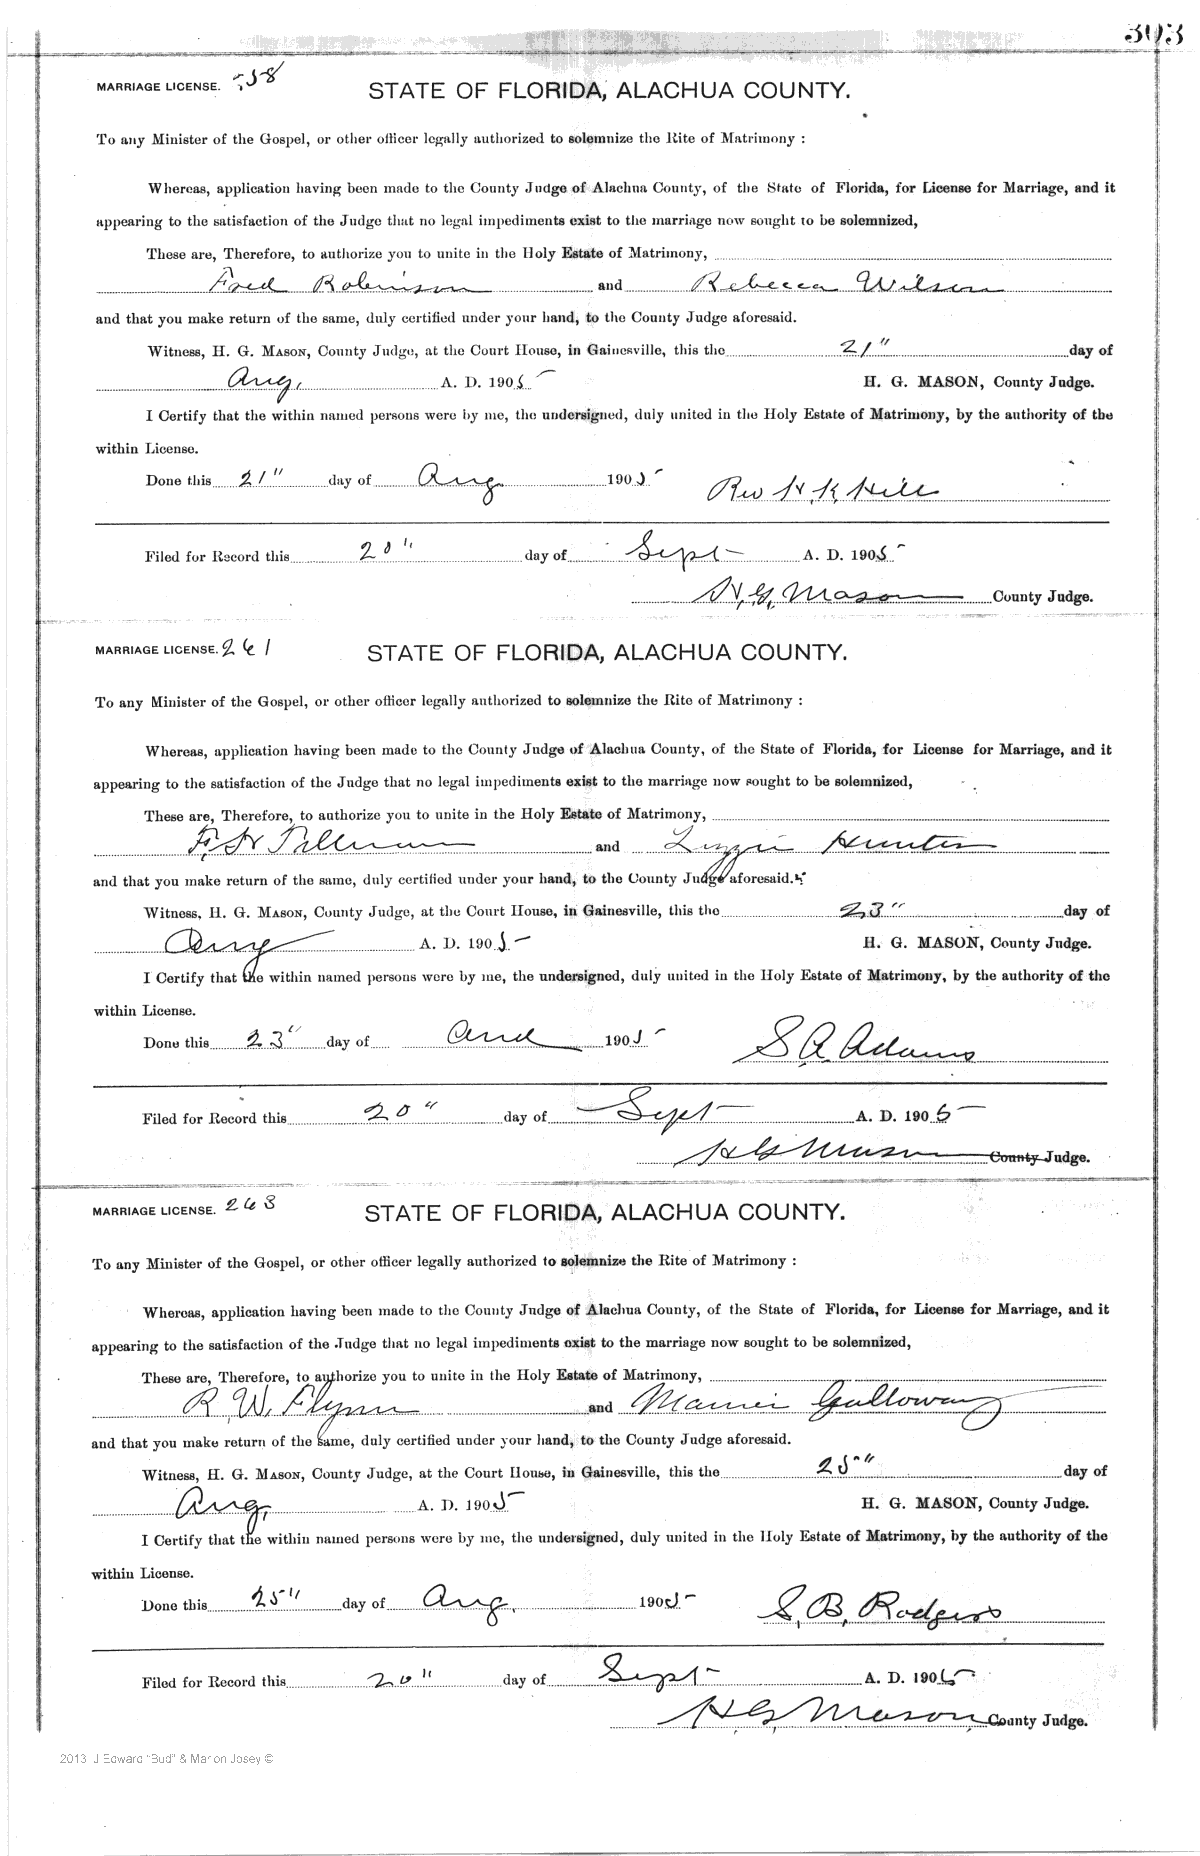 303
MARRIAGE LICENSE. 258 STATE OF FLORIDA, ALACHUA COUNTY.
To any Minister of the Gospel, or other officer legally authorized to solemnize the Rite of Matrimony :
Whereas, application having been made to the County Judge of Alachua County, of the State of Florida, for License for Marriage, and it
appearing to the satisfaction of the Judge that no legal impediments exist to the marriage now sought to be solemnized,
These are, Therefore, to authorize you to unite in the Holy Estate of Matrimony,
Fred Robinson and Rebecca Wilson
and that you make return of the same, duly certified under your hand, to the County Judge aforesaid.
Witness, H. G. MASON, County Judge, at the Court House, in Gainesville, this the 21" day of
Aug, A. D. 1905 H. G. MASON, County Judge.
I Certify that the within named persons were by me, the undersigned, duly united in the Holy Estate of Matrimony, by the authority of the
within License.
Done this 21" day of Aug 1905 Rev H. K. Hill
Filed for Record this 20" day of Sept A. D. 1905
H. G. Mason County Judge.
MARRIAGE LICENSE. 261 STATE OF FLORIDA, ALACHUA COUNTY.
To any Minister of the Gospel, or other officer legally authorized to solemnize the Rite of Matrimony :
Whereas, application having been made to the County Judge of Alachua County, of the State of Florida, for License for Marriage, and it
appearing to the satisfaction of the Judge that no legal impediments exist to the marriage now sought to be solemnized,
These are, Therefore, to authorize you to unite in the Holy Estate of Matrimony,
F. H Tillman and Lizzie Hunter
and that you make return of the same, duly certified under your hand, to the County Judge aforesaid.
Witness, H. G. MASON, County Judge, at the Court House, in Gainesville, this the 23" day of
Aug A. D. 1905 H. G. MASON, County Judge.
I Certify that the within named persons were by me, the undersigned, duly united in the Holy Estate of Matrimony, by the authority of the
within License.
Done this 23" day of 1905 S A Adams
Filed for Record this 20" day of Sept A. D. 1905
H G Mason County Judge.
MARRIAGE LICENSE. 263 STATE OF FLORIDA, ALACHUA COUNTY.
To any Minister of the Gospel, or other officer legally authorized to solemnize the Rite of Matrimony :
Whereas, application having been made to the County Judge of Alachua County, of the State of Florida, for License for Marriage, and it
appearing to the satisfaction of the Judge that no legal impediments exist to the marriage now sought to be solemnized,
These are, Therefore, to authorize you to unite in the Holy Estate of Matrimony,
R. W. Flynn and Mamie Galloway
and that you make return of the same, duly certified under your hand, to the County Judge aforesaid.
Witness, H. G. MASON, County Judge, at the Court House, in Gainesville, this the 25" day of
Aug, A. D. 1905 H. G. MASON, County Judge.
I Certify that the within named persons were by me, the undersigned, duly united in the Holy Estate of Matrimony, by the authority of the
within License.
Done this 25" day of Aug, 1905 S. B. Rodgers
Filed for Record this 20" day of Sept A. D. 1905
H. G. Mason County Judge.
2013 J Edward "Bud" & Marion Josey ©